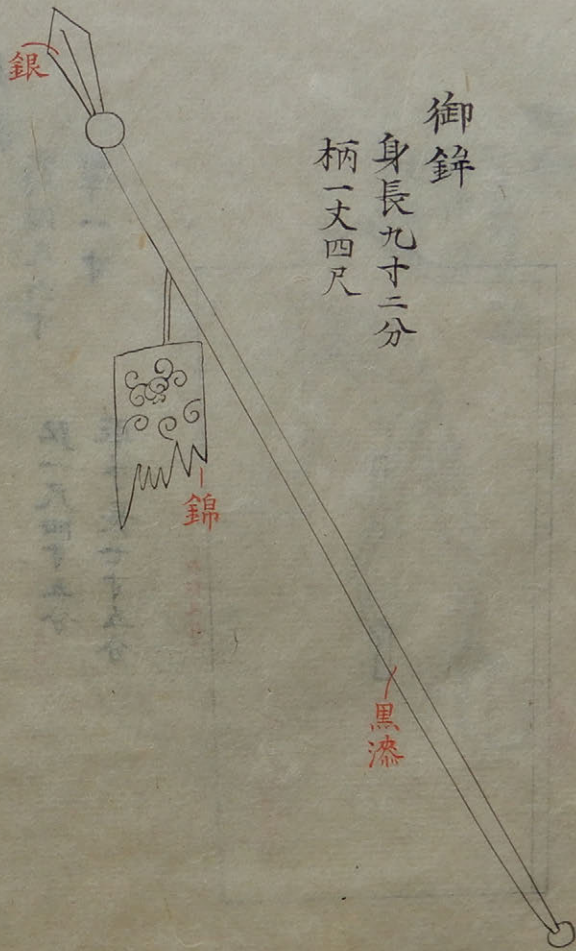 御鉾
身長九寸二分
柄一丈四尺
銀
錦
黒漆